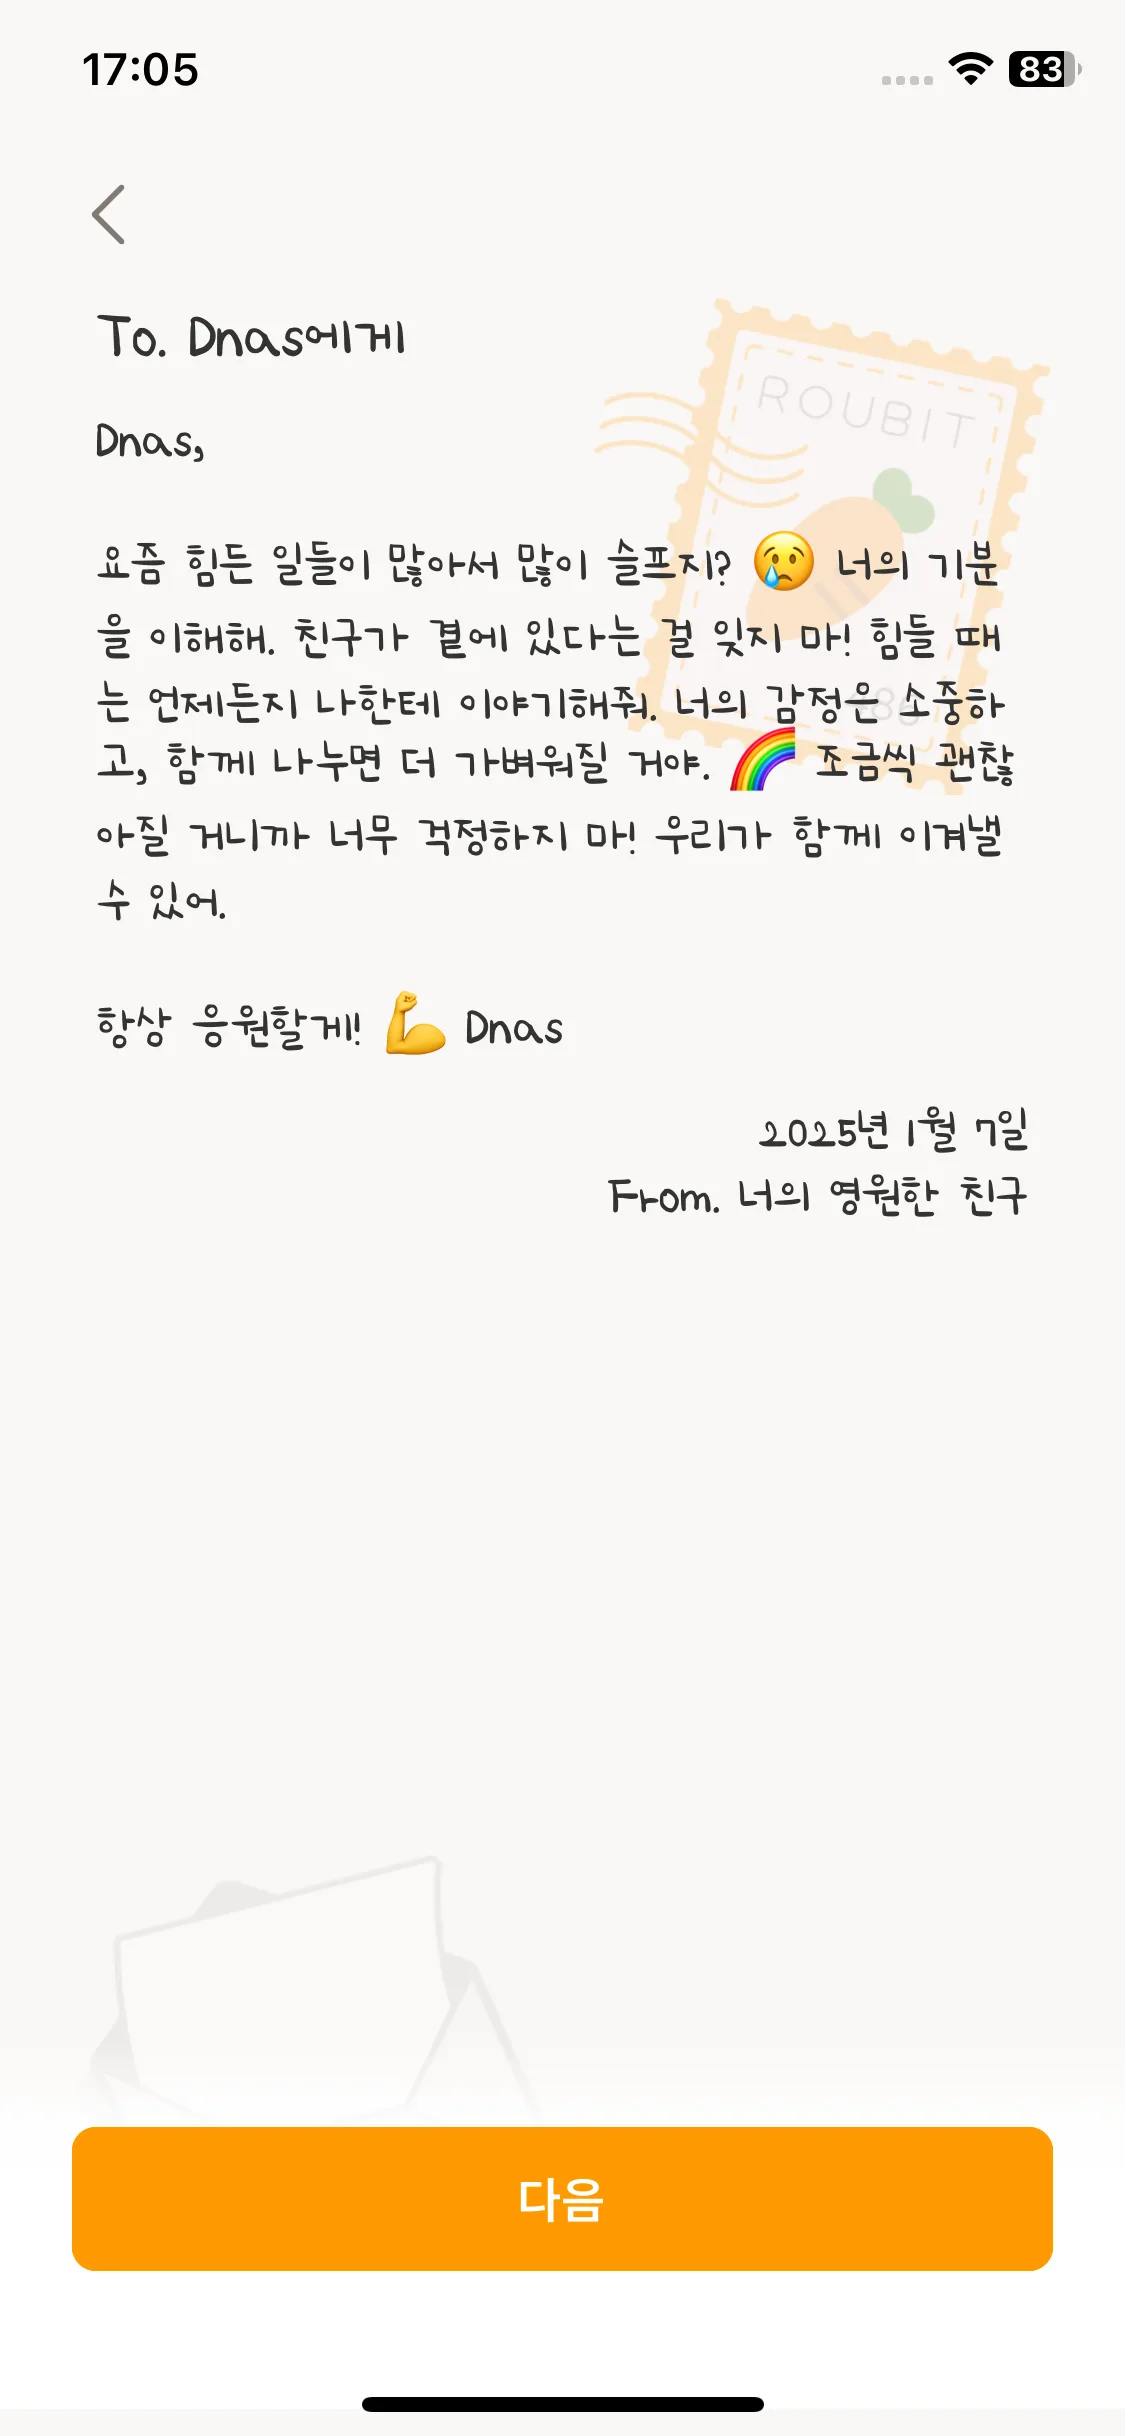 17:05
83
To. Dnas에게
ROUBIT
Dnas,
요즘 힘든 일들이 많아서 많이 슬프지? 😢 너의 기분
을 이해해. 친구가 곁에 있다는 걸 잊지 마! 힘들 때
는 언제든지 나한테 이야기해줘. 너의 감정은 소중하
486
고, 함께 나누면 더 가벼워질 거야. 🌈 조금씩 괜찮
아질 거니까 너무 걱정하지 마! 우리가 함께 이겨낼
수 있어.
항상 응원할게! 💪 Dnas
2025년 1월 7일
From. 너의 영원한 친구
다음